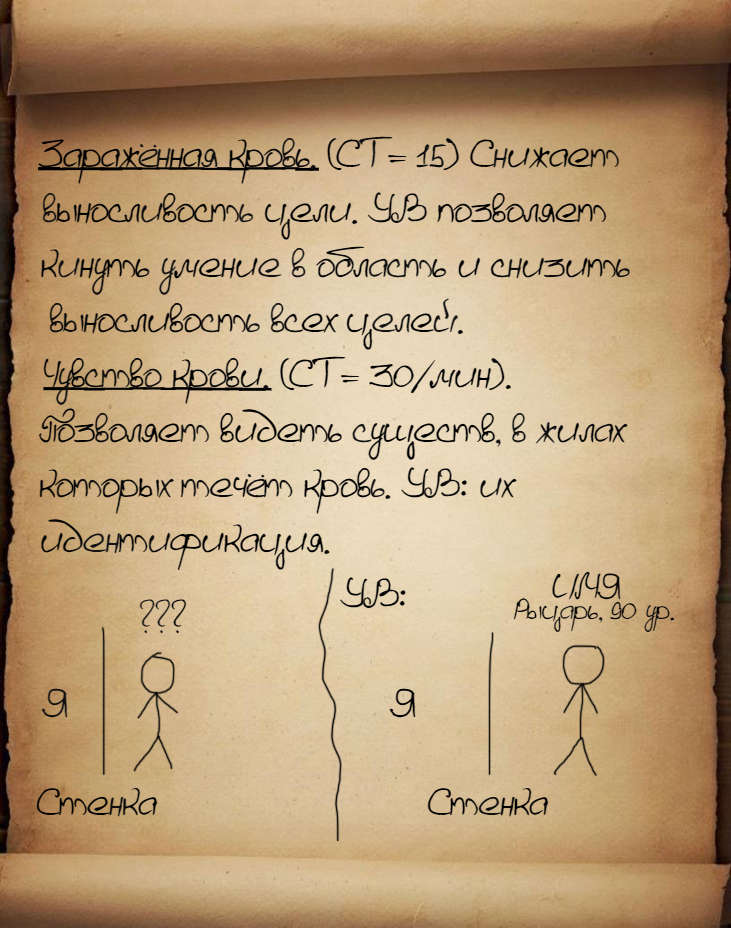 Заражённая кровь. (СТ = 15) Снижает
выносливость цели. УВ позволяет
кинуть умение в область и снизить
выносливость всех целей.
Чувство крови. (СТ = 30/мин).
Позволяет видеть существ, в жилах
которых течёт кровь. УВ: их
идентификация.
???
Я
Стенка
УВ:
ИМЯ
Рыцарь, 90 ур.
Я
Стенка